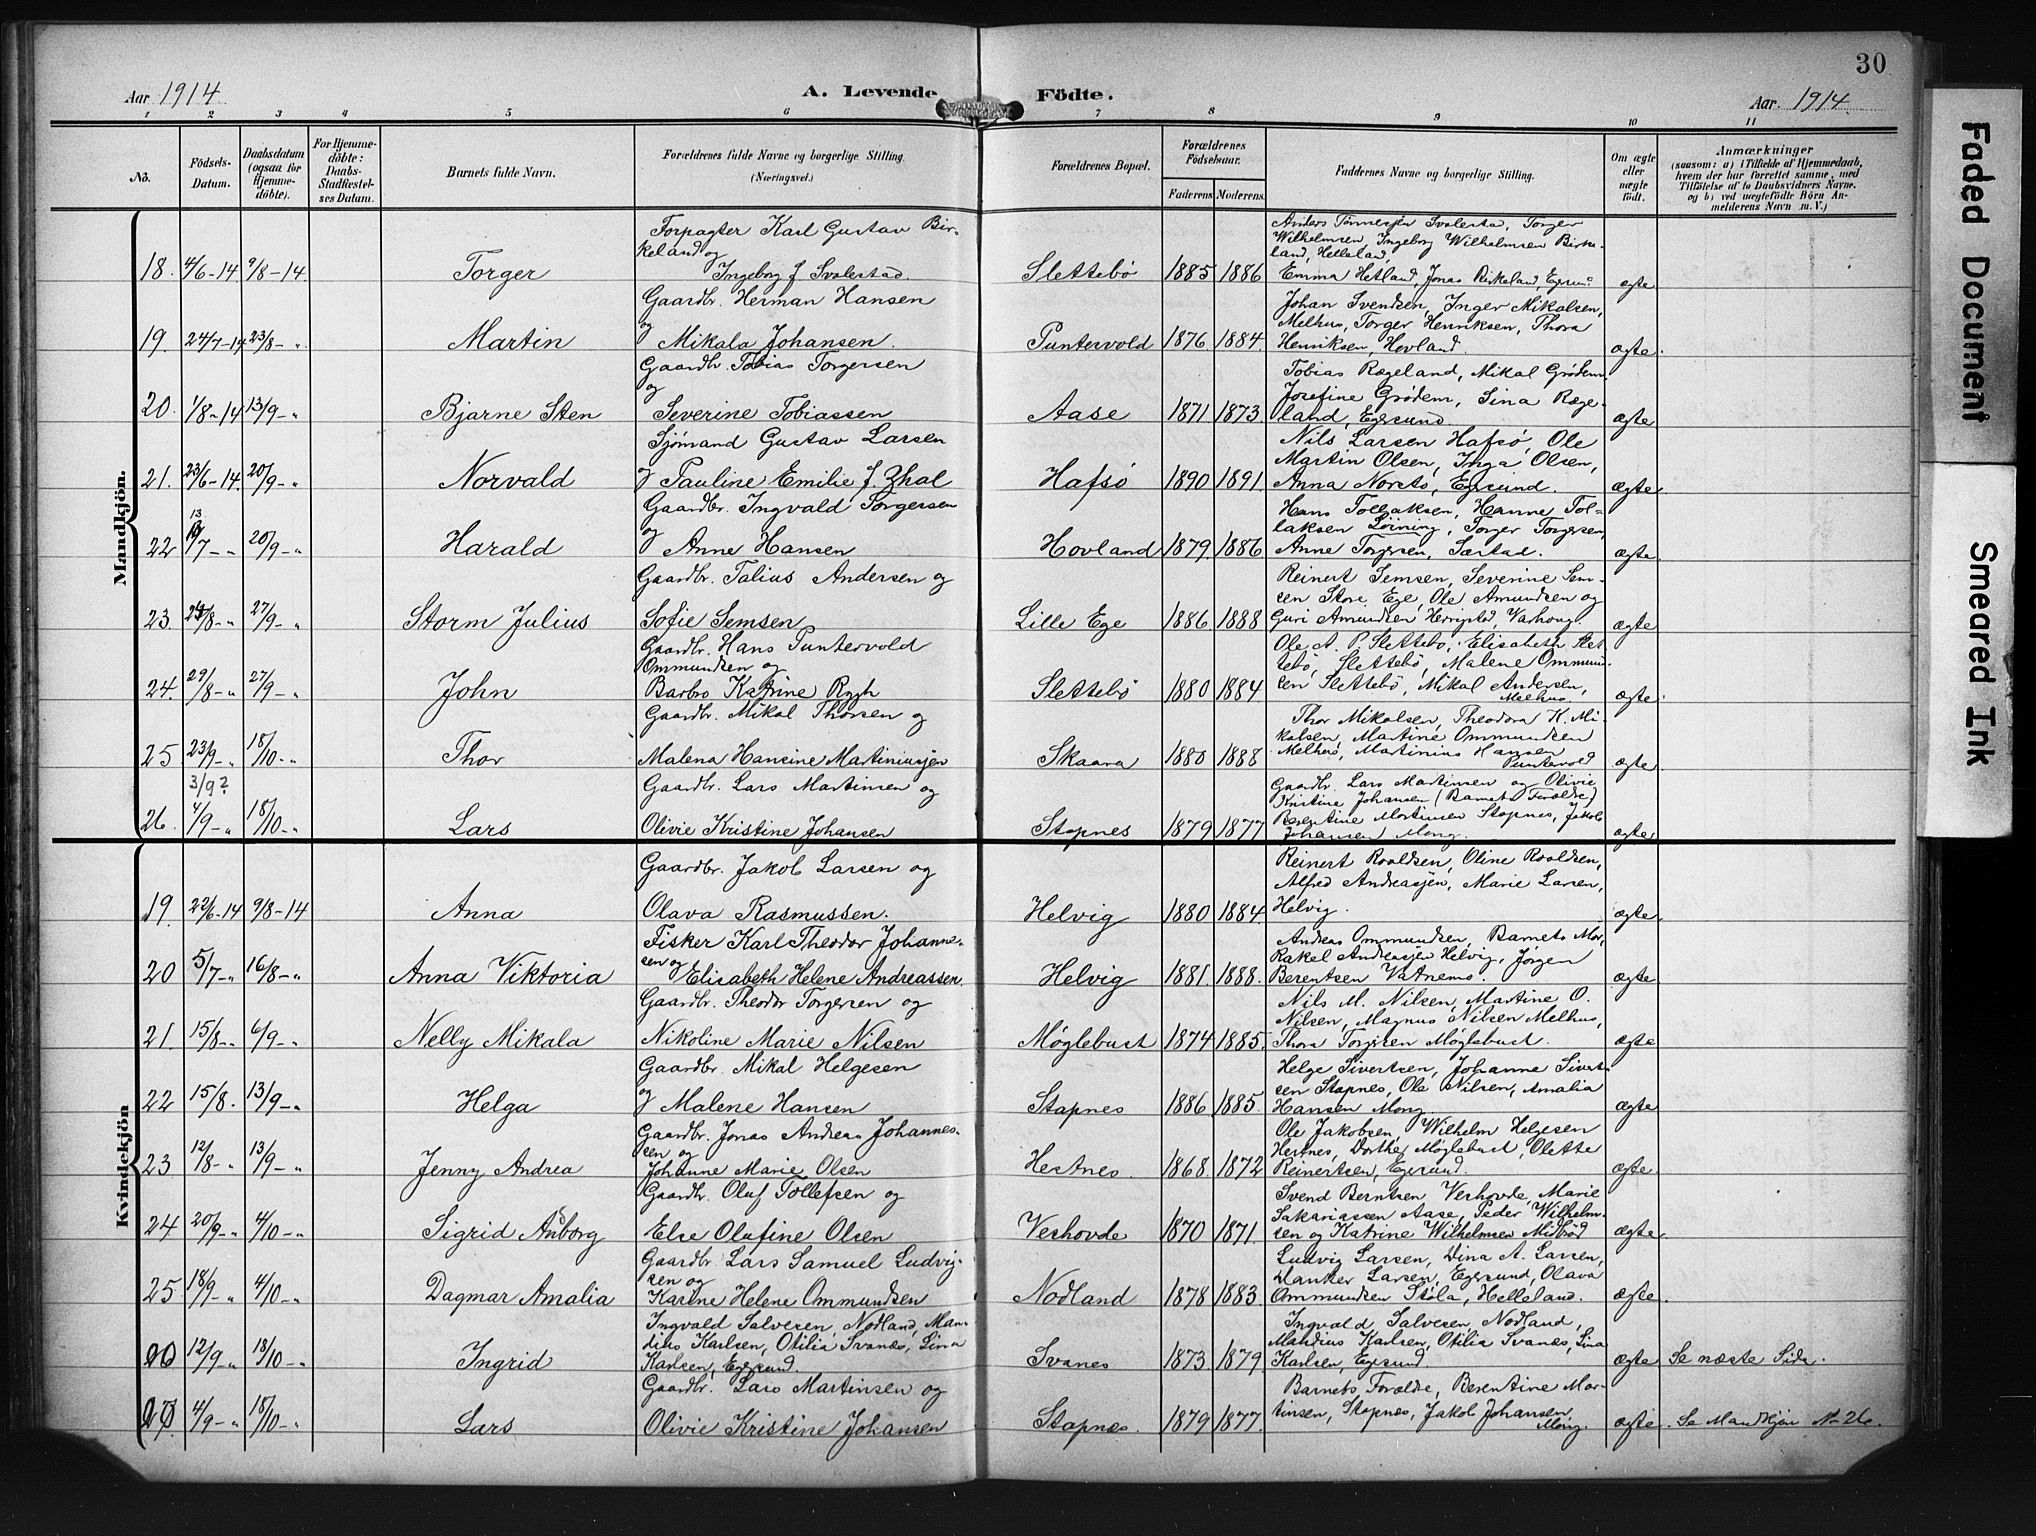 30
Aar 1914
A. Levende
Födte.
Aar. 1914.
1 2 3 4 5 6 7 8 9 10 11
No.
Födsels-Datum.
Daabsdatum (ogsaa for Hjemme-döbte).
For Hjemme-döbte: Daabs-Stadfæstel-ses Datum.
Barnets fulde Navn.
Forældrenes fulde Navne og borgerlige Stilling.
(Næringsvei.)
Forældrenes Bopæl.
Forældrenes Födselsaar.
Faderens Moderens
Faddernes Navne og borgerlige Stilling.
Om ægte eller uægte födt.
Anmærkninger
(saasom: a) i Tilfælde af Hjemmedaab, hvem der har forrettet samme, med Tilföielse af to Daabsvidners Navne. og b) ved uægtefödte Börn An-melderens Navn m. V.)
Mandkjön.
Forpagter Karl Gustav Bir-
keland og
18. 4/6-14. 9/8-14. Torger Ingeborg f. Svalestad. Slettebö 1885 1886 ægte
Anders Tönnesjen Svalestad, Torger
Wilhelmsen, Ingeborg Wilhelmsen Birke-
land, Helleland,
Emma Hetland, Jonas Birkeland, Egersu
Gaardbr. Herman Hansen
og
19. 24/7-14 23/8-" Martin Mikala Johansen. Puntervold 1876. 1884. ægte.
Johan Svendsen, Inger Mikalsen,
Melhus, Torger Henriksen, Thora
Henriksen, Hovland.
Gaardbr. Tobias Torgersen
og
20. 1/8-14 13/9-" Bjarne Sten Severine Tobiassen Aase 1871 1873. ægte
Tobias Rægeland, Mikal Grödem
Josefine Grödem, Sina Ræge-
land, Egersund.
Sjömand Gustav Larsen
21. 23/6-14. 20/9-" Norvald og Pauline Emilie f. Zhal Hafsö 1890 1891. ægte
Nils Larsen Hafsö, Ole
Martin Olsen, Inga Olsen,
Anna Norets, Egersund.
Gaardbr. Ingvald Torgersen
og
22 13/7-" 20/9-" Harald Anne Hansen Hovland 1879. 1886 ægte
Hans Tollaksen, Hanne Tol-
laksen Löining, Torger Torgersen,
Anne Torgersen, Sæstad.
Gaardbr. Talius Andersen og
23. 24/8-" 27/9-" Storm Julius Sofie Semsen Lille Ege 1886 1888 ægte
Reinert Semsen, Severine Sem-
sen Store Ege, Ole Amundsen og
Guri Amundsen Herigstad, Varhoug.
Gaardbr. Hans Puntervold
Ommundsen og
24. 29/8-" 27/9-" John Barbro Katrine Rygh Slettebö 1880 1884 ægte
Ole A. P. Slettebö, Elisabeth Slet-
tebö, Slettebö, Malene Ommund-
sen Slettebö, Mikal Andersen,
Melhus
Gaardbr. Mikal Thorsen og
25 23/9-" 18/10-" Thor Malena Hansine Martiniusjen Skaara 1880 1888 ægte
Thor Mikalsen, Theodora K. Mi-
kalsen, Martine Ommundsen
Melhus, Martinius Hansen
Puntervold
3/9?
Gaardbr. Lars Martinsen og
26. 4/9-" 18/10-" Lars Olivie Kristine Johansen Stapnes 1879 1877 ægte
Gaardbr. Lars Martinsen og Olivie
Kristine Johansen (Barnets Forældre)
Berentine Martinsen Stapnes, Jakob
Johansen Mong.
Kvindekjön
Gaardbr. Jakob Larsen og
19. 22/6-14 9/8-14 Anna Olava Rasmussen. Helvig 1880 1884. ægte
Reinert Roaldsen, Oline Roaldsen,
Alfred Andreasjen, Marie Larsen,
Helvig.
Fisker Karl Theodor Johanne-
sen og
20 5/7-" 16/8-" Anna Viktoria Elisabeth Helene Andreassen. Helvig 1881. 1888. ægte
Andreas Ommundsen, Barnets Mor,
Rakel Andreasjen Helvig, Jörgen
Berentsen Vatnemo.
Gaardbr. Theodor Torgersen og
21. 15/8-" 6/9-" Nelly Mikala Nikoline Marie Nilsen Möglebust 1874 1885. ægte
Nils M. Nilsen, Martine O.
Nilsen, Magnus Nilsen Melhus,
Thora Torgersen Möglebust.
Gaardbr. Mikal Helgesen
22 15/8. 13/9-" Helga og Malene Hansen Stapnes 1886 1885. ægte
Helge Sivertsen, Johanne Sivert-
sen Stapnes, Ole Nilsen, Amalia
Hansen Mong
Gaardbr. Jonas Andreas Johannes-
sen og
23 12/8-" 13/9-" Jenny Andrea Johanne Marie Olsen Hestnes. 1868. 1872 ægte
Ole Jakobsen, Wilhelm Helgesen
Hestnes, Dorthe Möglebust, Olette
Reinertsen, Egersund.
Gaardbr. Oluf Tollefsen og
24 20/9-" 4/10-" Sigrid Asborg Else Olufine Olsen Veshovde 1870 1871. ægte
Svend Berntsen Veshovde, Marie
Sakariassen Aase, Peder Wilhelm-
sen og Katrine Wilhelmsen Midbröd
Gaardbr. Lars Samuel Ludvig-
sen og
25 18/9-" 4/10-" Dagmar Amalia Karine Helene Ommundsen Nodland 1878 1883. ægte
Ludvig Larsen, Dina A. Larsen,
Danker Larsen, Egersund, Olava
Ommundsen Stöla, Helleland.
Ingvald Salvesen, Nodland, Man-
dius Karlsen, Otilia Svanes, Lina
26 12/9-" 18/10-" Ingrid Karlsen, Egersund. Svanes 1873. 1879. ægte Se næste Side.
Ingvald Salvesen, Nodland,
Mandius Karlsen, Otilia Svanes, Lina
Karlsen, Egersund
Gaardbr. Lars Martinsen og
27. 4/9-" 18/10-" Lars Olivie Kristine Johansen Stapnes 1879 1877. ægte. Se Mandkjön No 26.
Barnets Forældre, Berentine Mar-
tinsen, Stapnes, Jakob Johansen
Mong.
Faded Document
Smeared Ink